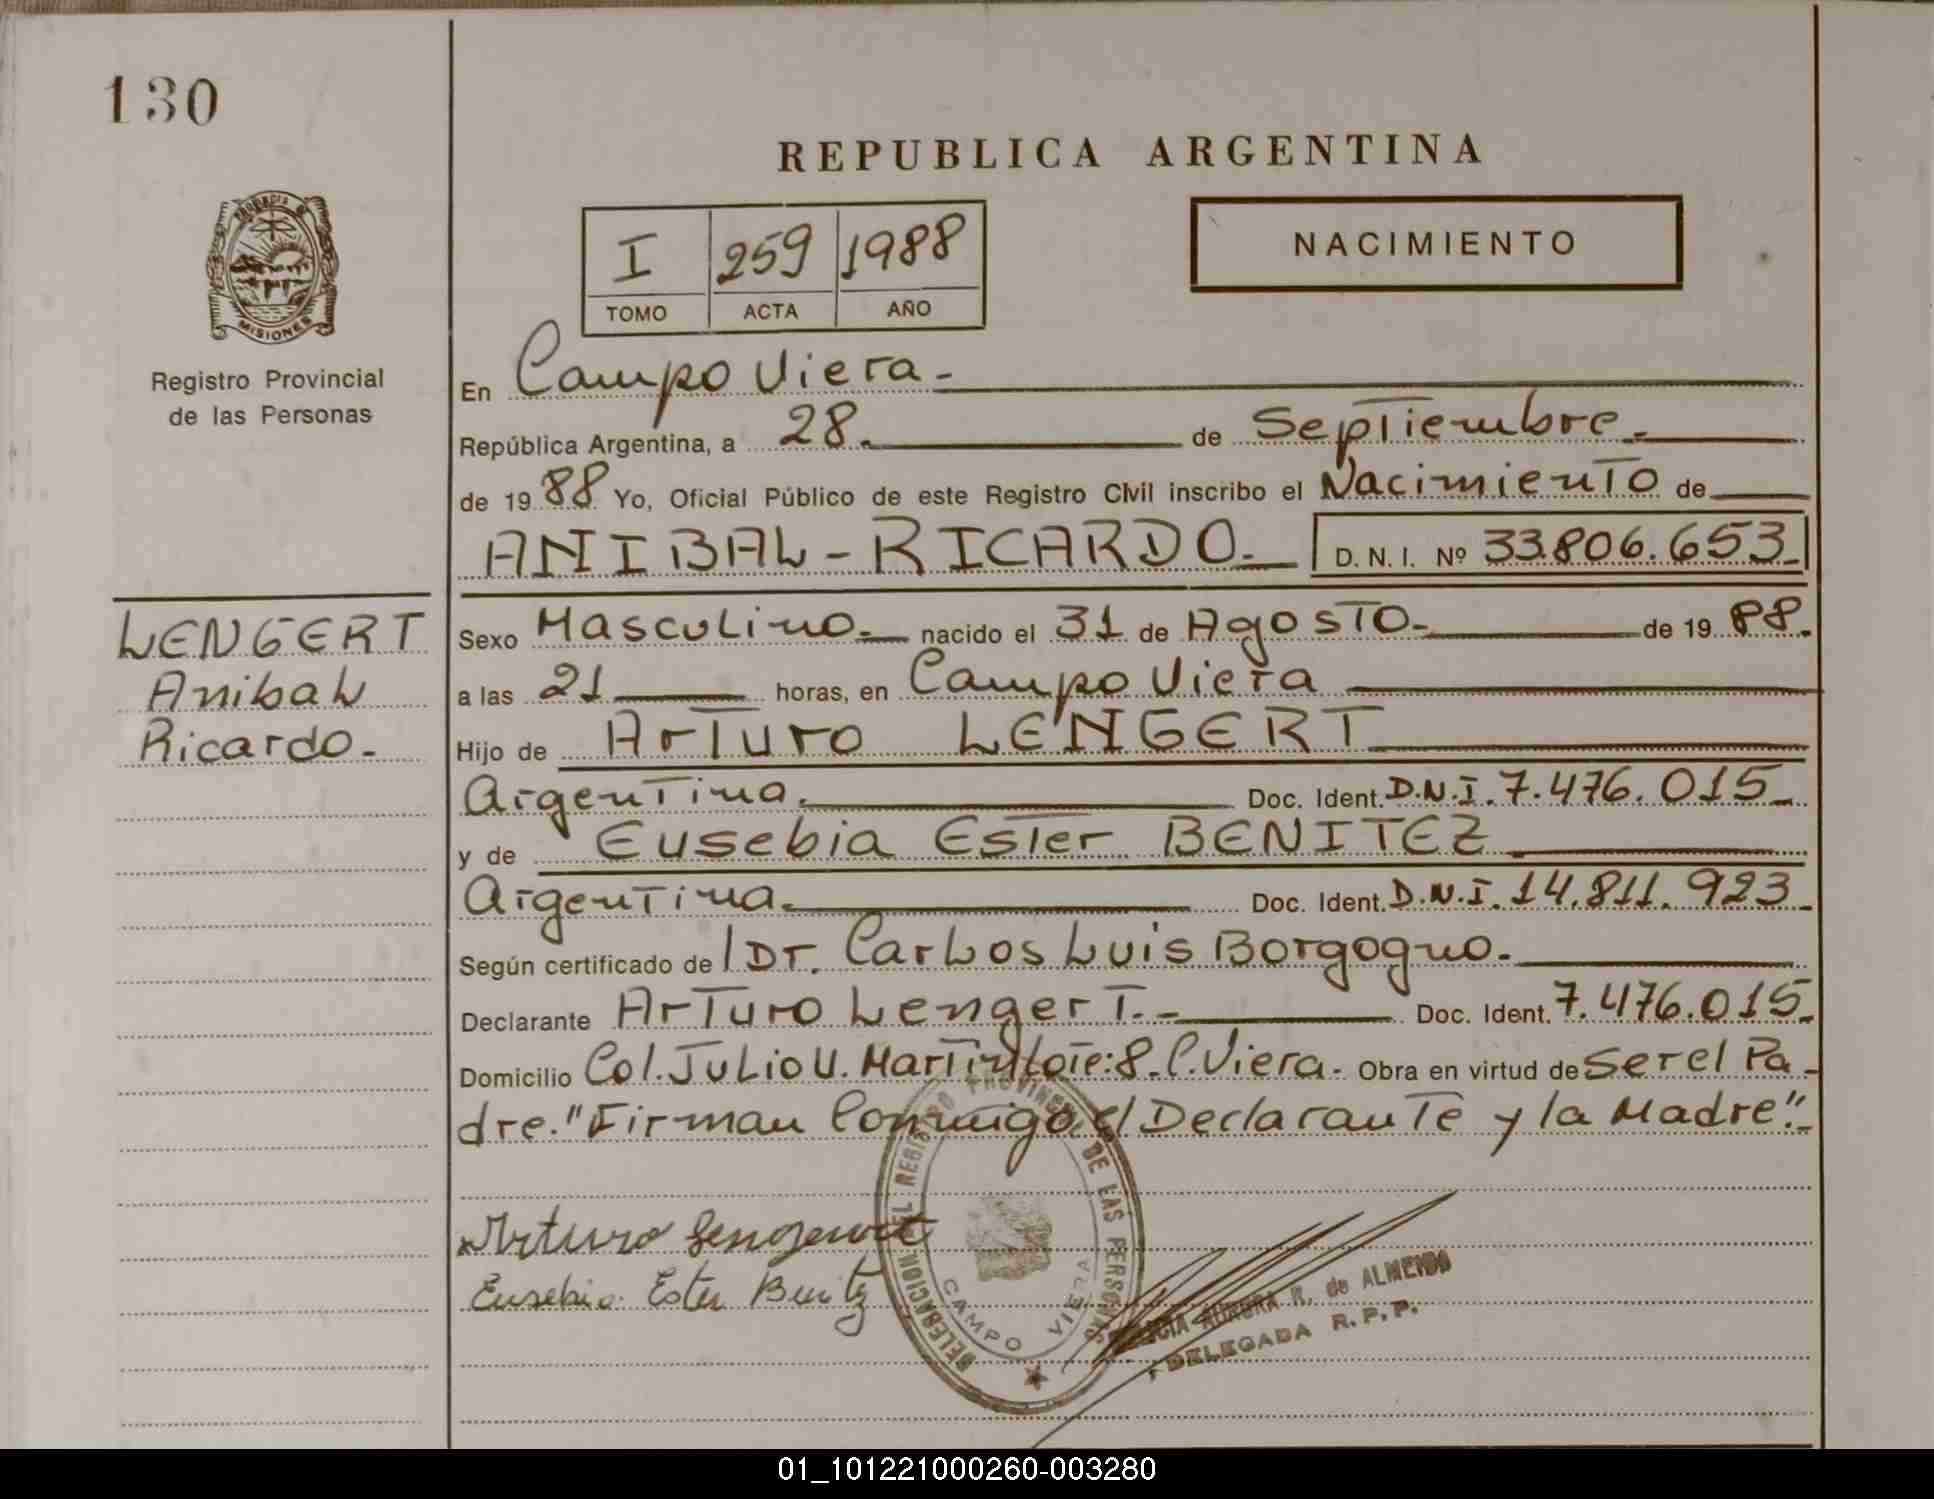 130
REPUBLICA ARGENTINA
I 259 1988
TOMO ACTA AÑO
NACIMIENTO
PROVINCIA DE
MISIONES
Registro Provincial
de las Personas
En Campo Viera.-
República Argentina, a 28. de Septiembre.
de 19 88 Yo, Oficial Público de este Registro Civil inscribo el Nacimiento de
ANIBAL - RICARDO. D. N. I. Nº 33.806.653
LENGERT
Anibal
Ricardo.-
Sexo Masculino.- nacido el 31 de Agosto.- de 19 88.
a las 21 horas, en Campo Viera
Hijo de Arturo LENGERT
Argentina. Doc. Ident. D.N.I. 7.476.015
y de Eusebia Ester BENITEZ
Argentina. Doc. Ident. D.N.I. 14.811.923
Según certificado de / Dr. Carlos Luis Borgogno.
Declarante Arturo Lengert.- Doc. Ident. 7.476.015.
Domicilio Col. Julio U. Martin Lote: 8. C. Viera. Obra en virtud de Ser el Pa-
dre. "Firman Conmigo el Declarante y la Madre".
Arturo Lengert
Eusebia Ester Benitez
DELEGACION DEL REGISTRO PROVINCIAL DE LAS PERSONAS
CAMPO VIERA
AURORA R. de ALMEIDA
DELEGADA R.P.P.
01_101221000260-003280